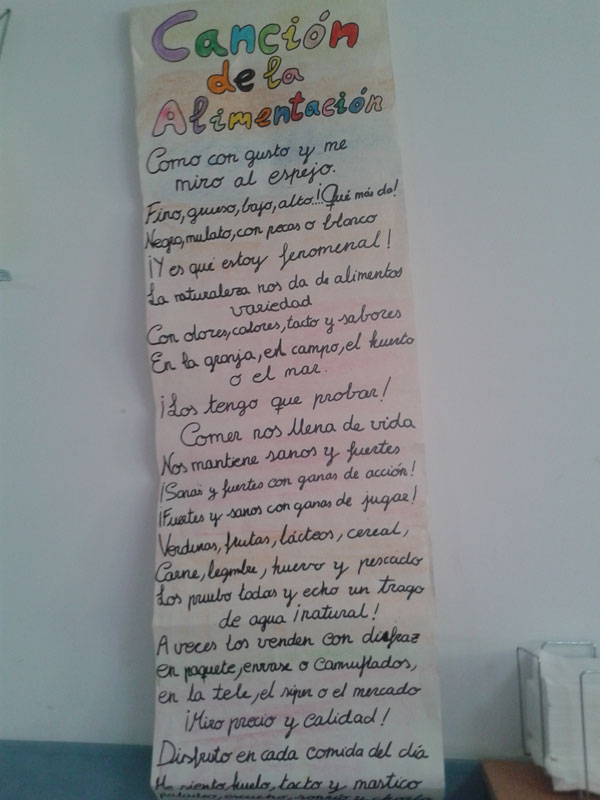 Canción
de la
Alimentación
Como con gusto y me
miro al espejo.
Fino, grueso, bajo, alto...¡Qué más da!
Negro, mulato, con pecas o blanco
¡Y es que estoy fenomenal!
La naturaleza nos da de alimentos
variedad
Con olores, colores, tacto y sabores
En la granja, en campo, el huerto
o el mar.
¡Los tengo que probar!
Comer nos llena de vida
Nos mantiene sanos y fuertes
¡Sanos y fuertes con ganas de acción!
¡Fuertes y sanos con ganas de jugar!
Verduras, frutas, lácteos, cereal,
Carne, legumbre, huevo y pescado
Los pruebo todos y echo un trago
de agua ¡natural!
A veces los venden con disfraz
en paquete, envase o camuflados,
en la tele, el súper o el mercado
¡Miro precio y calidad!
Disfruto en cada comida del día
Me siento, huelo, tacto y mastico
paladeo, escucho, sonrío y charlo